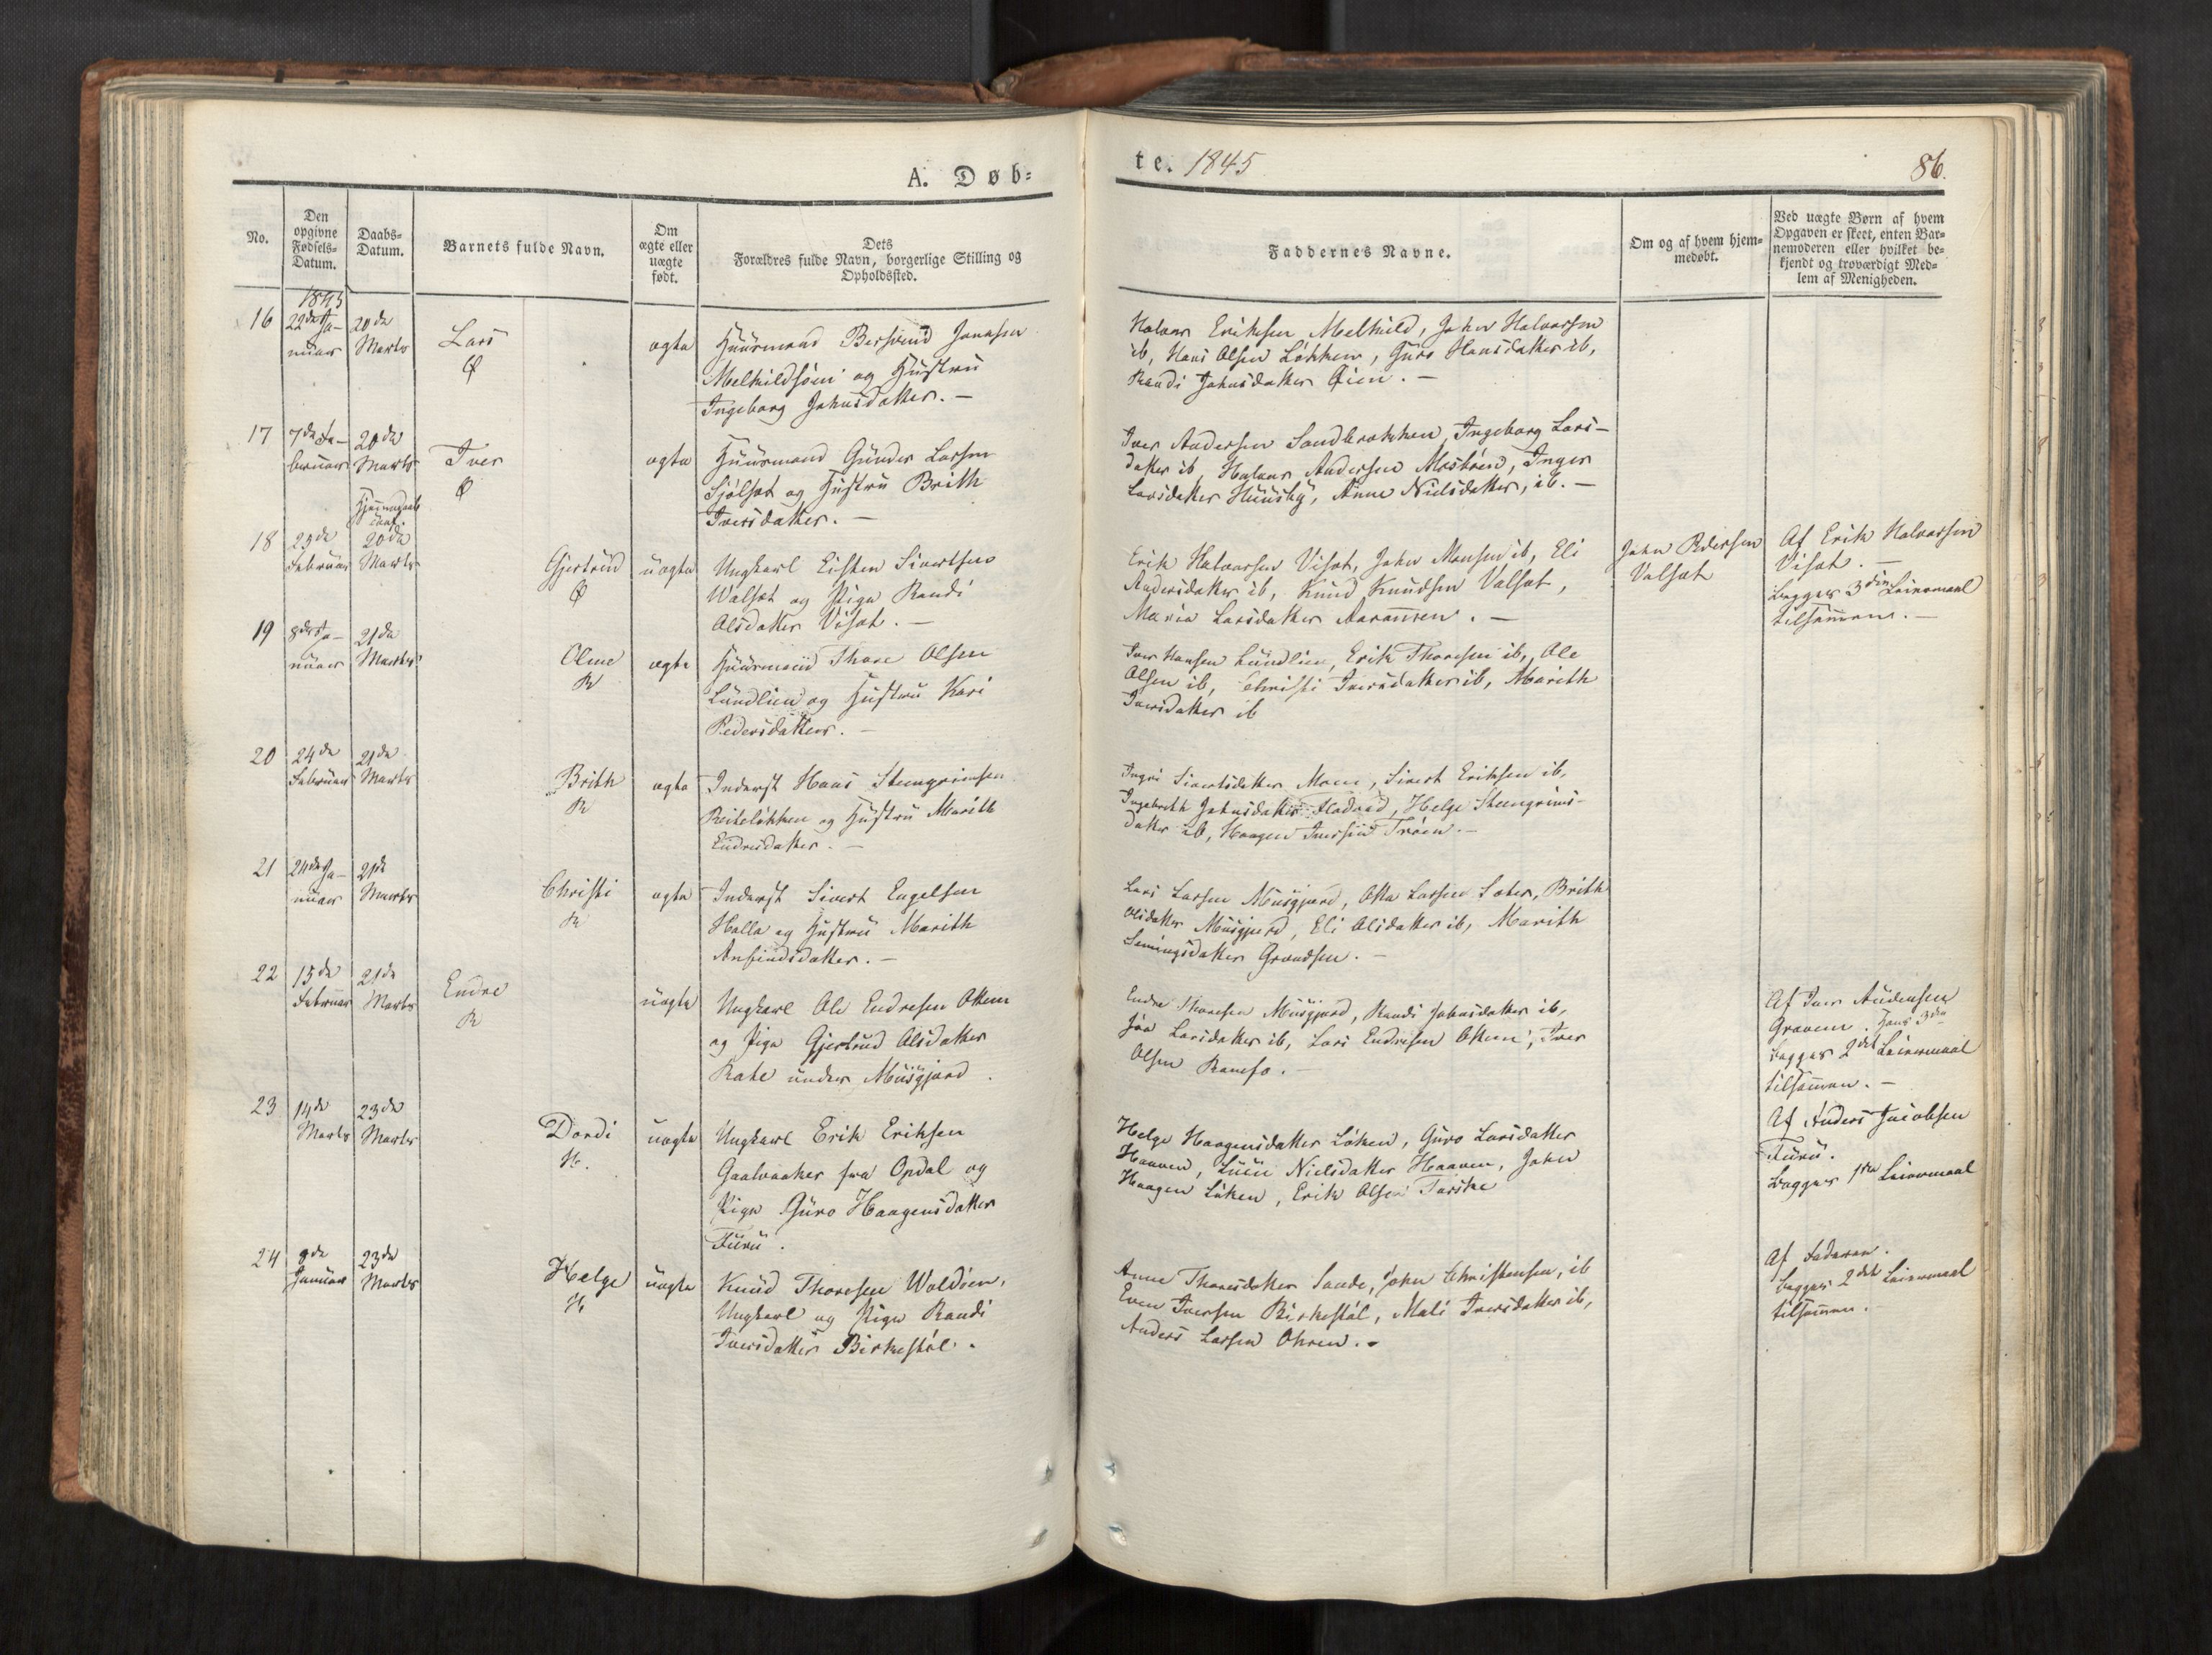 A. Døb=
te. 1845
86.
No.
Den
opgivne
Fødsels=
Datum.
Daabs=
Datum.
Barnets fulde Navn.
Om
ægte eller
uægte
født.
Dets
Forældres fulde Navn, borgerlige Stilling og
Opholdssted.
Faddernes Navne.
Om og af hvem hjem=
medøbt.
Ved uægte Børn af hvem
Opgaven er skeet, enten Bar=
nemoderen eller hvilket be=
kjendt og troværdigt Med=
lem af Menigheden.
1845
16
22de Ja-
nuar
20de
Marts
Lars
Ø
ægte
Huusmand Bersvend Jonassen
og Hustru
Ingeborg Johnsdatter. —
Halvor Eriksen Melkild, John Halvorsen
ib, Hans Olsen Løkken, Guro Hansdatter ib,
Randi Johnsdatter Øien. —
17
7de Fe-
bruar
20de
Marts
Iver
Ø
ægte
Huusmand Gunder Larsen
Sjølset og Hustru Brith
Iversdatter. —
Iver Andersen Sandbrekken, Ingeborg Lars-
datter ib, Halvor Andersen Inger
Larsdatter Huusby, Anne Nielsdatter, ib. —
Hjemmedaab
conf.
18
23de
Februar
20de
Marts
Gjertrud
Ø
uægte
Ungkarl Eisten Sivertsen
Walset og Pige Randi
Olsdatter Viset. —
Erik Halvorsen Viset, John Monsen ib, Eli
Andersdatter ib, Knud Knudsen Valset,
Maria Larsdatter —
John Pedersen
Valset
Af Erik Halvorsen
Viset. —
Begges 3die Leiermaal
tilsammen. —
19
8de Ja-
nuar
21de
Marts
Olme
R
ægte
Huusmand Thore Olsen
Lundlien og Hustru Kari
Pedersdatter. —
Iver Hansen Lundlien, Erik Thoresen ib, Ole
Olsen ib, Christi Iversdatter ib, Marith
Iversdatter ib
20
24de
Februar
21de
Marts
Brith
R
ægte
Inderst Hans Steengrimsen
Reiteløkken og Hustru Marith
Endresdatter. —
Ingri Sivertsdatter Moen, Sivert Eriksen ib,
Ingebrith Johnsdatter Helge Steengrims-
datter ib, Haagen Iversen Trøen. —
21
24de Ja-
nuar
21de
Marts
Christi
R
ægte
Inderst Sivert Engelsen
Halle og Hustru Marith
Arfindsdatter. —
Lars Larsen Musgjerd, Otte Larsen Sæter, Brith
Olsdatter Musgjerd, Eli Olsdatter ib, Marith
Semingsdatter Grandsen. —
22
15de
Februar
21de
Marts
Endre
R
uægte
Ungkarl Ole Endresen Ottem
og Pige Gjertrud Olsdatter
Rate under Musgjerd.
Endre Thoresen Musgjerd, Randi Johnsdatter ib,
Larsdatter ib, Lars Endresen Ottem, Iver
Olsen —
Af Iver Andersen
Graven. Hans 3die
Begges 2det Leiermaal
tilsammen. —
23
14de
Marts
23de
Marts
Dordi
H.
uægte
Ungkarl Erik Eriksen
Gaalvaaker fra Opdal og
Pige Guro Haagensdatter
Furu.
Helge Haagensdatter Løken, Guro Larsdatter
Haaven, Nielsdatter Haaven, John
Haagen Løken, Erik Olsen Torske
Af Anders Jacobsen
Furu.
Begges 1ste Leiermaal
24
9de
Januar
23de
Marts
Helge
H
uægte
Knud Thoresen Woldøien,
Ungkarl og Pige Randi
Iversdatter Birkestøl.
Anne Thoresdatter Sande, John Christensen, ib
Even Iversen Birkestøl, Mali Iversdatter ib,
Anders Larsen Ohren. —
Af Faderen.
Begges 2det Leiermaal
tilsammen.